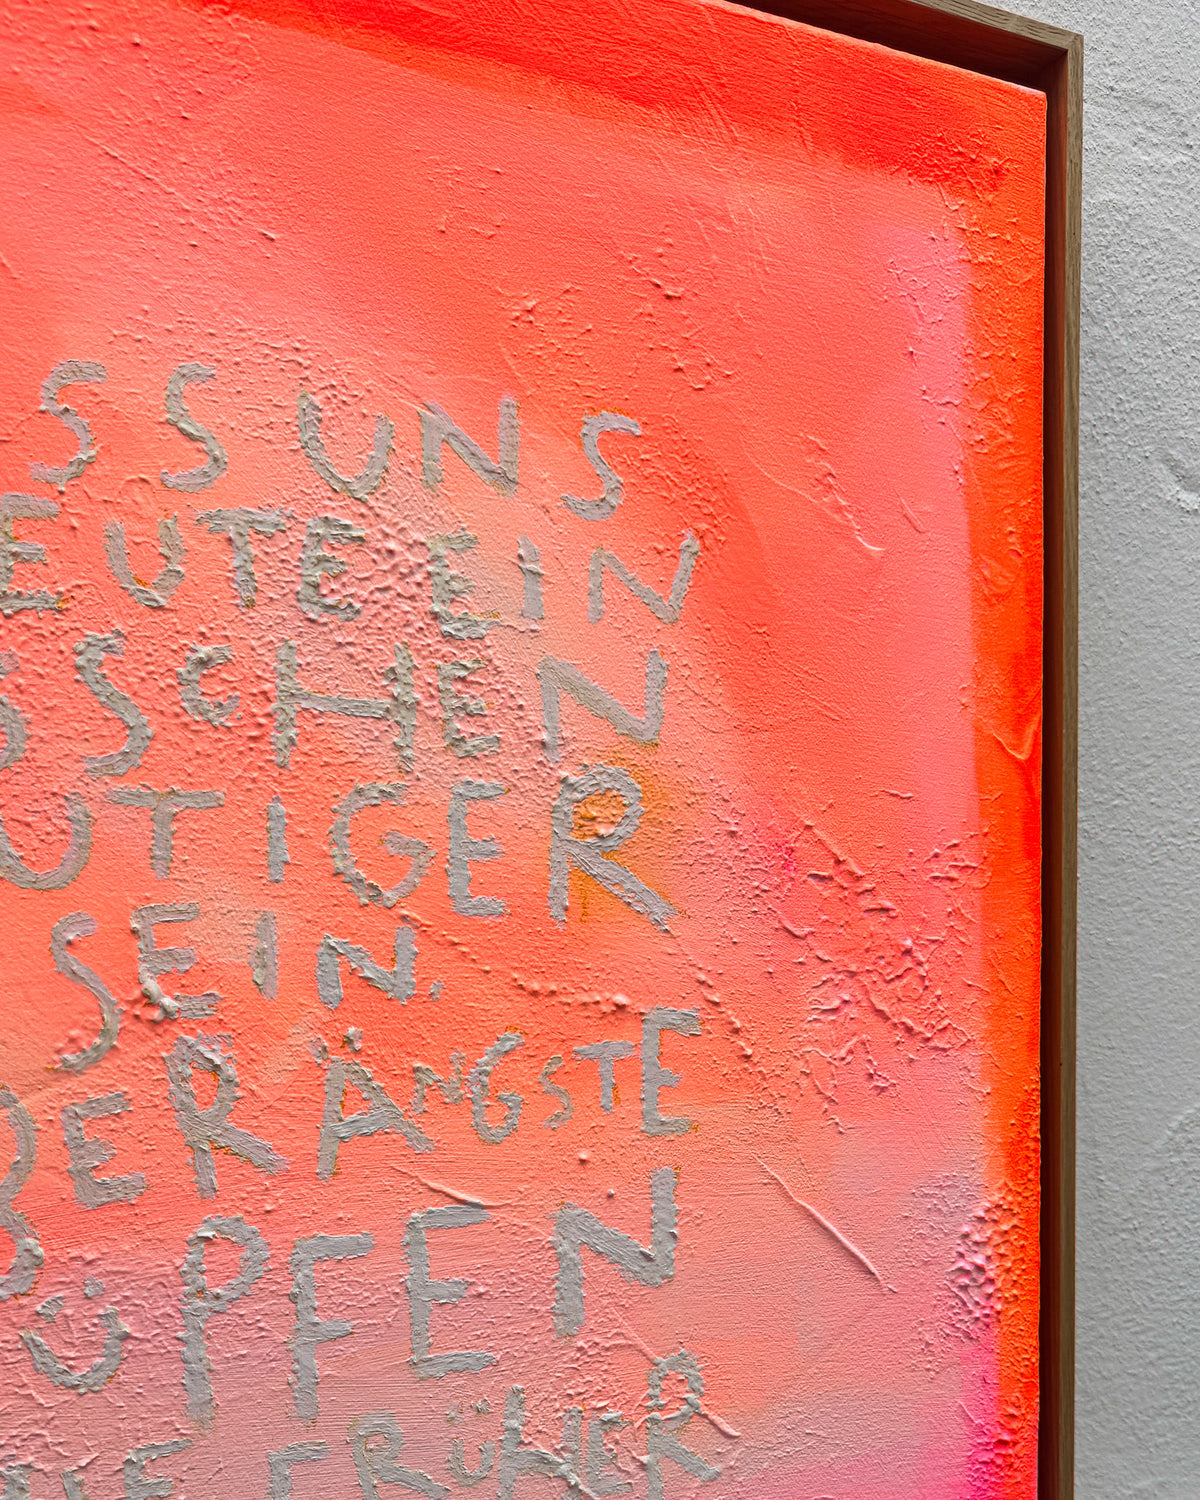 SS UNS
EUTE EIN
SSCHEN
UTIGER
SEIN.
DER ÄNGSTE
ÜPFEN
WIE FRÜHER